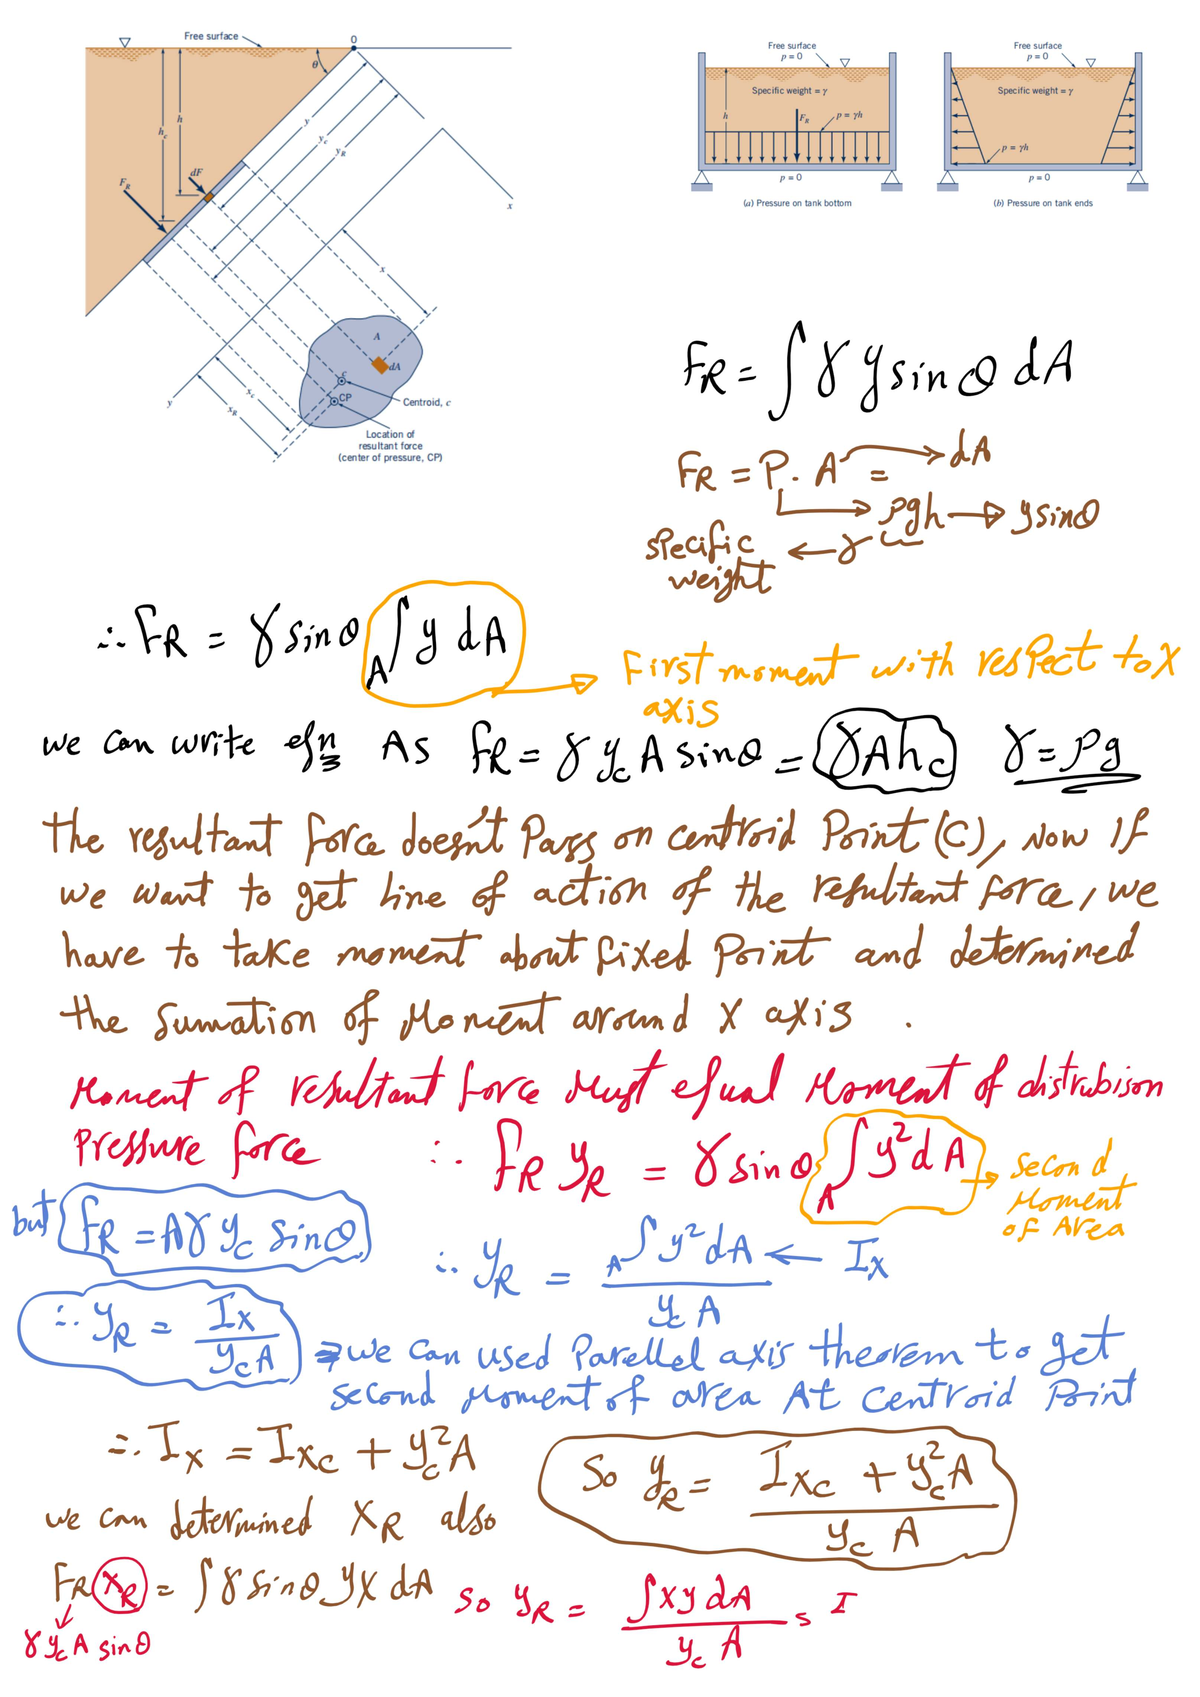 Free surface
O
θ
h
h_c
y
y_c
y_R
dF
F_R
x
x
A
dA
c
CP
Centroid, c
x_c
x_R
y
Location of
resultant force
(center of pressure, CP)
Free surface
p = 0
Specific weight = γ
h
F_R
p = γh
p = 0
(a) Pressure on tank bottom
Free surface
p = 0
Specific weight = γ
p = γh
p = 0
(b) Pressure on tank ends
F_R = ∫ γ y sin θ dA
F_R = P . A = → dA
→ ρgh → y sin θ
specific ← γ
weight
∴ F_R = γ sin θ ∫_A y dA
First moment with respect to X
axis
we can write eqn As F_R = γ y_c A sin θ = γAh_c γ = ρg
the resultant force doesn't Pass on centroid Point (C), Now If
we want to get line of action of the resultant force, we
have to take moment about fixed Point and determined
the sumation of Moment around X axis .
Moment of resultant force Must equal Moment of distrubison
Pressure force ∴ F_R y_R = γ sin θ ∫_A y² dA → Second
Moment
of Area
but F_R = Aγ y_c sin θ
∴ y_R = ∫_A y² dA / y_c A ← I_x
∴ y_R = I_x / y_c A ⇒ we can used Parellel axis theorem to get
second Moment of area At centroid Point
∴ I_x = I_xc + y_c² A
So y_R = I_xc + y_c² A / y_c A
we can determined X_R also
F_R X_R = ∫ γ sin θ y x dA so y_R = ∫ x y dA / y_c A = I
γ y_c A sin θ